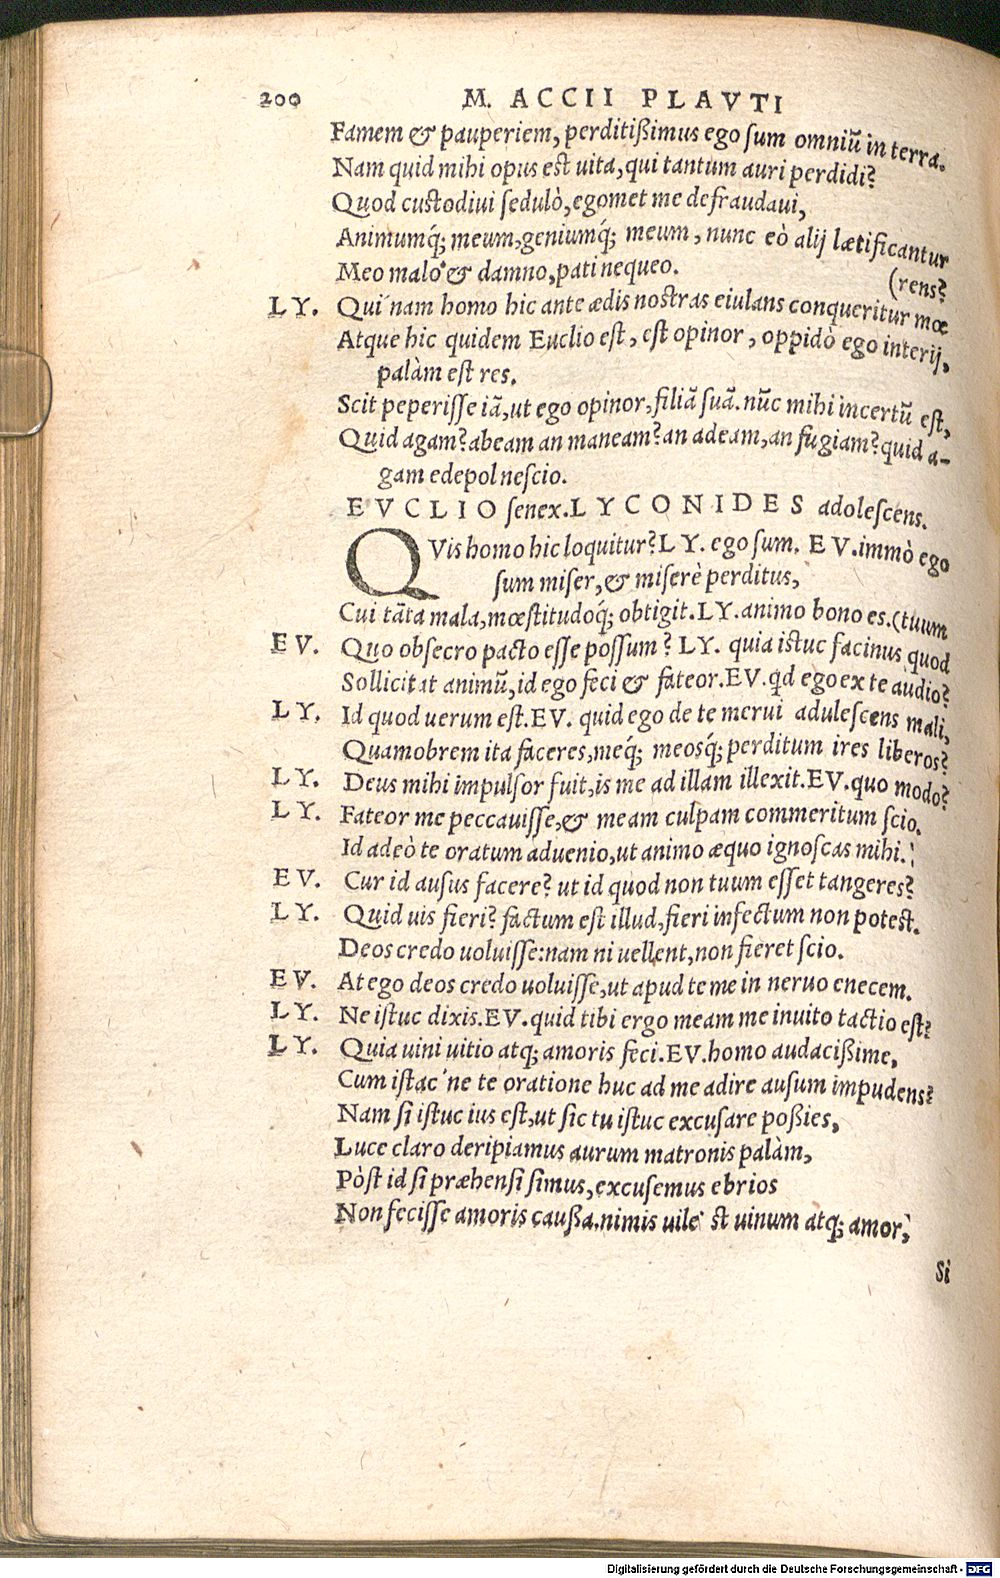 200 M. ACCII PLAVTI
Famem & pauperiem, perditißimus ego sum omniũ in terra.
Nam quid mihi opus est uita, qui tantum auri perdidi?
Quod custodiui sedulò, egomet me defraudaui,
Animumq́; meum, geniumq́; meum, nunc eò alij lætificantur
Meo malo & damno, pati nequeo. (rens?
LY. Qui nam homo hic ante ædis nostras eiulans conqueritur mœ
Atque hic quidem Euclio est, est opinor, oppidò ego interij,
palàm est res.
Scit peperisse iã, ut ego opinor, filiã suã. nũc mihi incertũ est,
Quid agam? abeam an maneam? an adeam, an fugiam? quid a-
gam edepol nescio.
EVCLIO senex. LYCONIDES adolescens.
QVis homo hic loquitur? LY. ego sum. EV. immò ego
sum miser, & miserè perditus,
Cui tãta mala, mœstitudoq́; obtigit. LY. animo bono es. (tuum
EV. Quo obsecro pacto esse possum? LY. quia istuc facinus quod
Sollicitat animũ, id ego feci & fateor. EV. qd ego ex te audio?
LY. Id quod uerum est. EV. quid ego de te merui adulescens mali,
Quamobrem ita faceres, meq́; meosq́; perditum ires liberos?
LY. Deus mihi impulsor fuit, is me ad illam illexit. EV. quo modo?
LY. Fateor me peccauisse, & meam culpam commeritum scio.
Id adeò te oratum aduenio, ut animo æquo ignoscas mihi.
EV. Cur id ausus facere? ut id quod non tuum esset tangeres?
LY. Quid uis fieri? factum est illud, fieri infectum non potest.
Deos credo uoluisse: nam ni uellent, non fieret scio.
EV. At ego deos credo uoluisse, ut apud te me in neruo enecem.
LY. Ne istuc dixis. EV. quid tibi ergo meam me inuito tactio est?
LY. Quia uini uitio atq; amoris feci. EV. homo audacißime,
Cum istac'ne te oratione huc ad me adire ausum impudens?
Nam si istuc ius est, ut sic tu istuc excusare poßies,
Luce claro deripiamus aurum matronis palàm,
Pòst id si præhensi simus, excusemus ebrios
Non fecisse amoris caußa. nimis uile'st uinum atq; amor,
Si
Digitalisierung gefördert durch die Deutsche Forschungsgemeinschaft - DFG